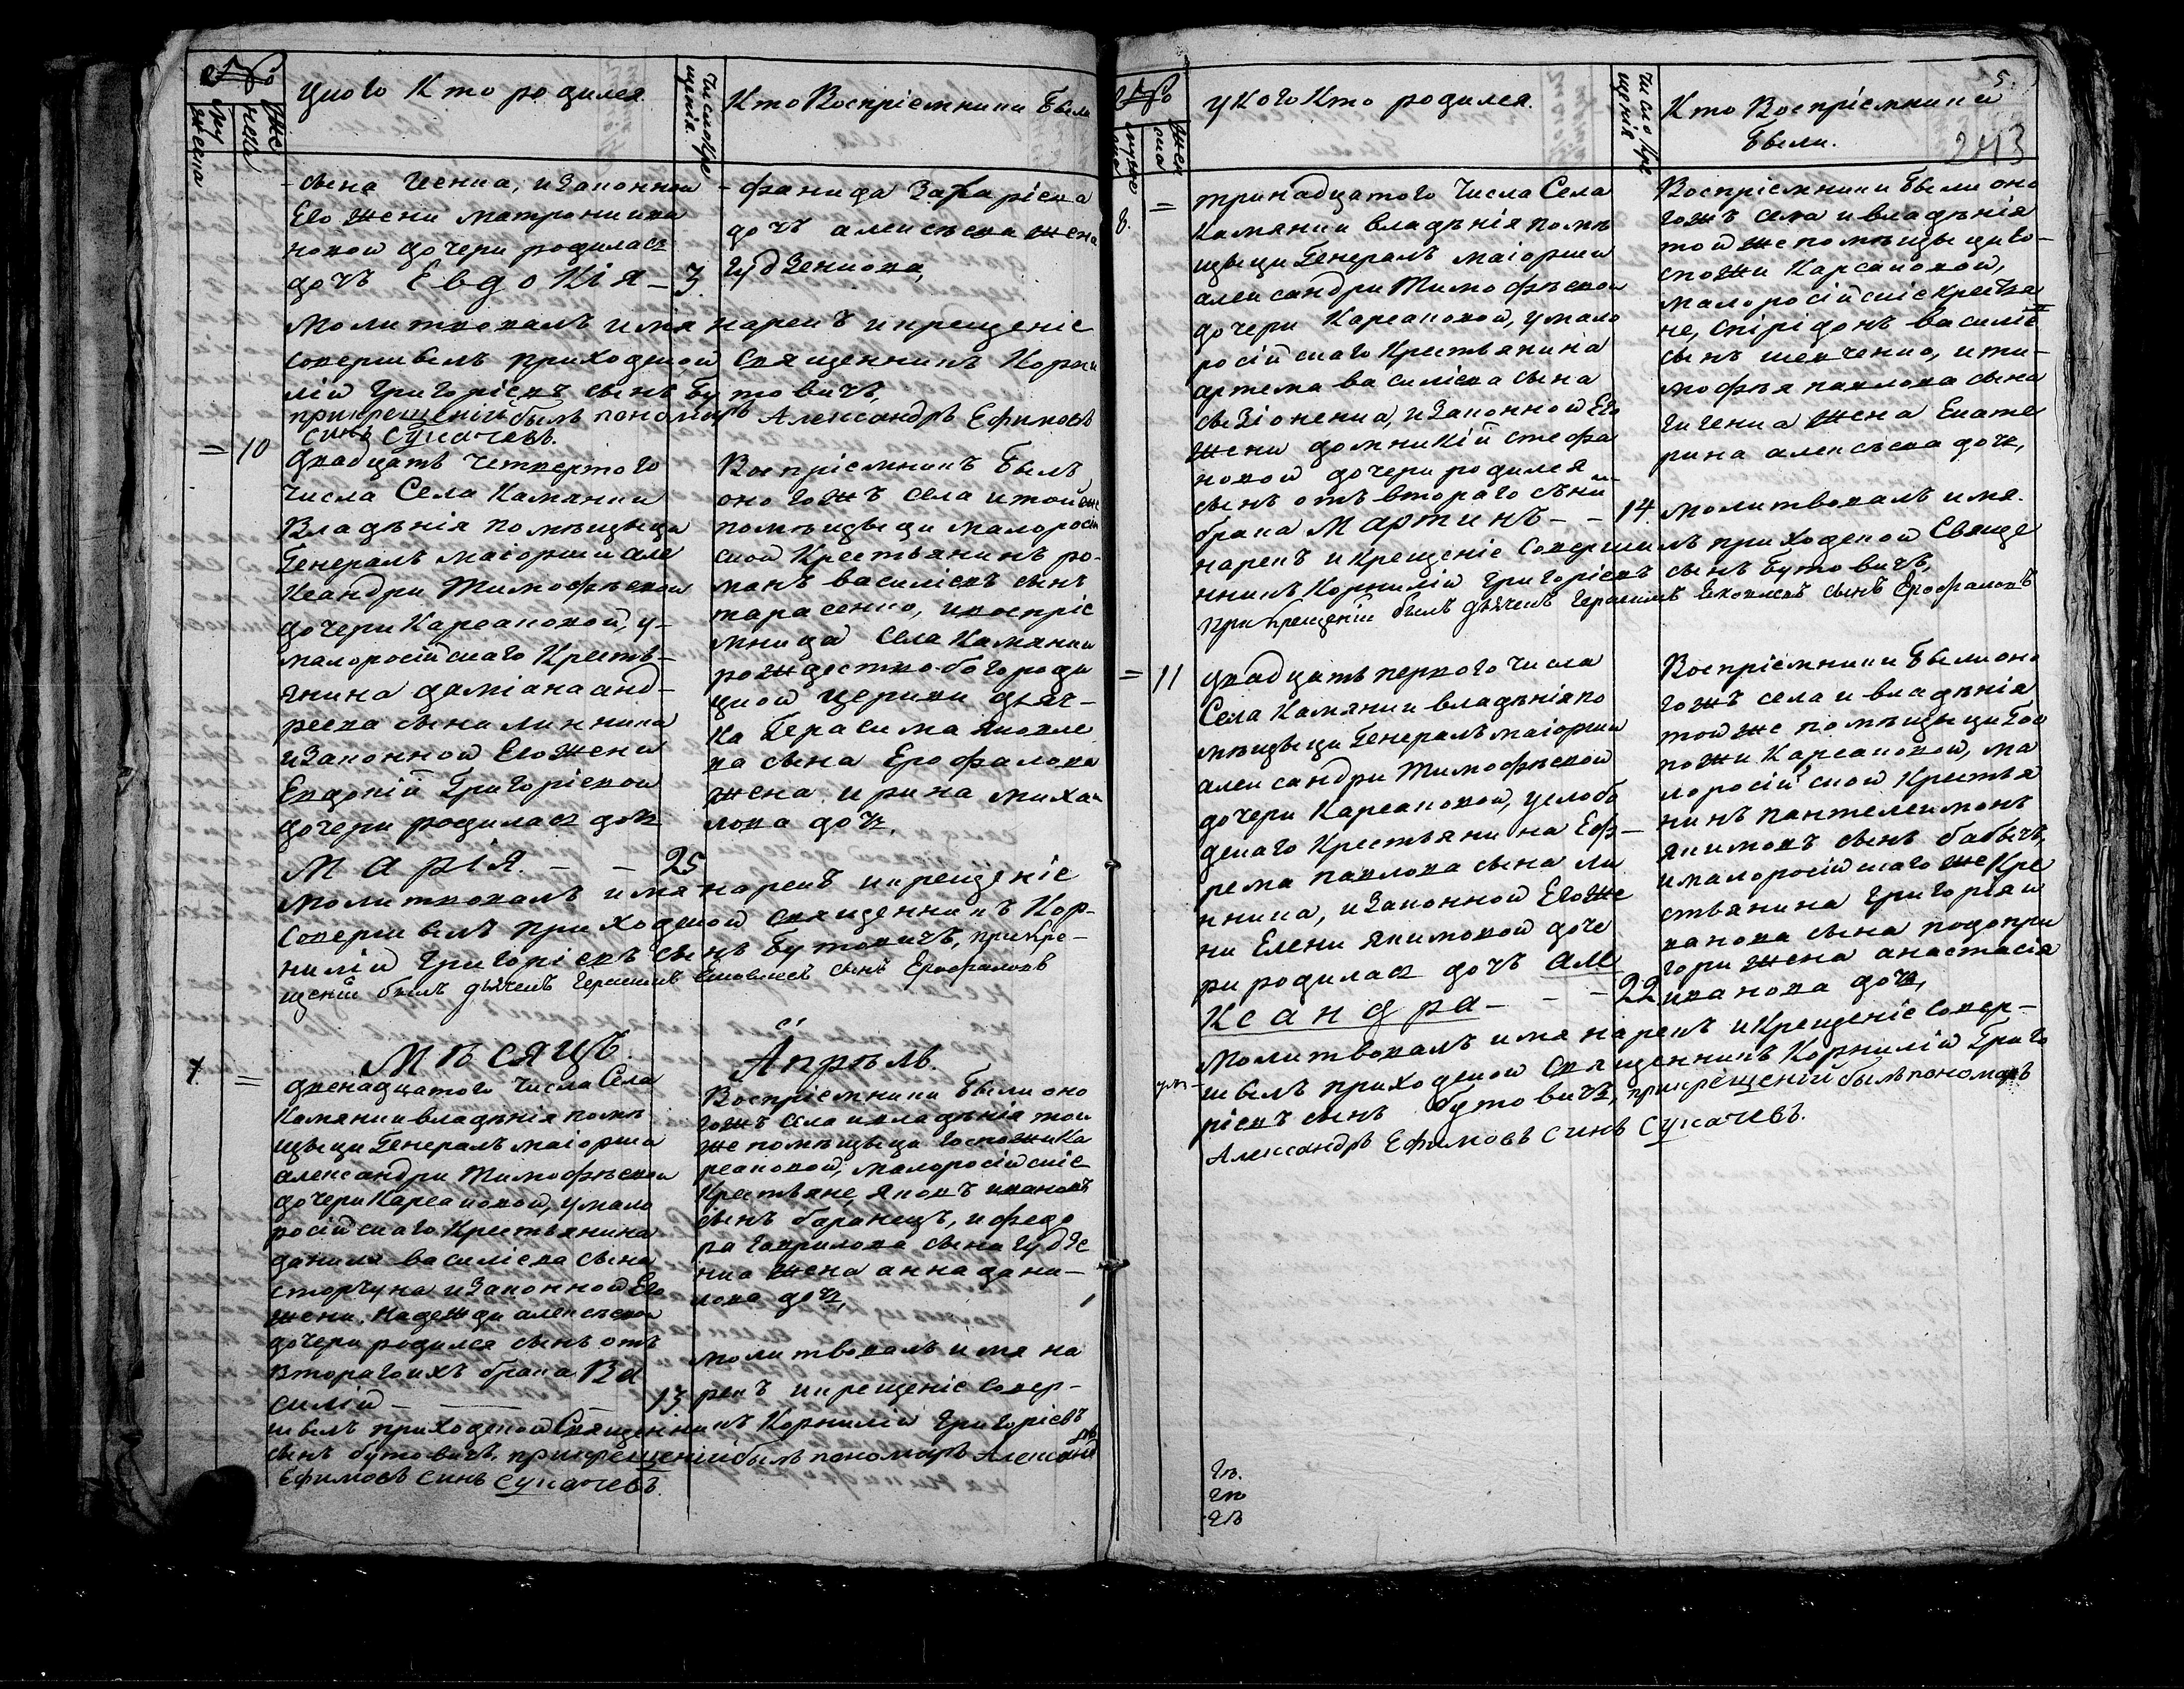 №
мужеска
женска
у кого кто родился
число кре
щенія
Кто Воспріемники были
сына Ченка, и Законной
Его жени матрони ива
новой дочери родилась
дочъ Евдокія – 3
фанида Захаріева
дочъ алексѣева жена
Гудзенкова,
молитвовалъ имя нарекъ и крещеніе
совершилъ приходской Священникъ Корни
лій Григоріевъ сынъ Бутовичъ,
при крещеніи былъ пономаръ Александръ Ефимовъ
синъ Сукачевъ.
= 10
двадцать четвертого
числа Села Камянки
Владѣнія помѣщыци
Генералъ маіорши але
ксандри Тимофѣевой
дочери Карсаковой, у
малоросійскаго Кресть–
янина даміана анд–
реева сына линника
и Законной Его жени
Евдокій Григоріевой
дочери родилась дочъ
Марія. – – 25
Воспріемникъ былъ
оногожъ села и той же
помѣщыци малоросій
ской Крестьянинъ ро–
манъ василіевъ сынъ
тарасенко, и воспріе
мница Села Камянки
рождество богороди
чной церкви дьяч–
ка Герасима яковле
ва сына Ерофалова
жена ирина михай
лова дочъ,
молитвовалъ имя нарекъ и крещеніе
совершилъ приходской священникъ Кор–
нилій Григоріевъ сынъ Бутовичъ, при кре–
щеніи былъ дьячекъ Герасимъ Яковлевъ сынъ Ерофаловъ
Мѣсяцъ Апрѣль.
7. =
двенадцатого числа Села
Камянки владѣнія помѣ
щыци Генералъ маіорши
александри Тимофѣевой
дочери Карсаковой, у мало
російскаго Крестьянина
данила василіева сына
сторчука и Законной Его
жени надежди алексѣевой
дочери родился сынъ отъ
втораго ихъ брака Ва
силій – – – 13
Воспріемники были оно
гожъ села и владѣнія той
же помѣщыци госпожи Ка
рсаковой, малоросійскіе
Крестьяне, яковъ ивановъ
сынъ баранецъ, и федо
ра гаврилова сына гудзе
нка жена анна дани–
лова дочъ,
молитвовалъ имя на
рекъ и крещеніе совер–
шилъ приходской Священникъ Корнилій Григоріевъ
сынъ бутовичъ, при крещеніи былъ пономаръ Александръ
Ефимовъ синъ Сукачевъ.
№
у кого кто родился.
число кре
щенія
Кто Воспріемники
были.
5.
243
8. =
тринадцатого числа Села
Камянки владѣнія помѣ
щыци Генералъ маіорши
александри Тимофѣевой
дочери Карсаковой, у мало
російскаго Крестьянина
артема василіева сына
и Законной Его
жени домникій стефа
новой дочери родился
сынъ отъ втораго
брака Мартинъ – – 14.
Воспріемники были оно
гожъ села и владѣнія
той же помѣщыци го–
спожи Карсаковой,
малоросійскіе крестья
не, спірідонъ василіе
сынъ шевченко, и ти–
мофѣя павлова сына
жена Екате
рина алексѣева дочъ,
молитвовалъ имя.
нарекъ и крещеніе совершилъ приходской Свяще
нникъ Корнилій Григоріевъ сынъ Бутовичъ,
при крещеніи былъ дьячекъ Герасимъ Яковлевъ сынъ Ерофаловъ
= 11
двадцать первого числа
Села Камянки владѣнія по
мѣщыци Генералъ маіорши
александри Тимофѣевой
дочери Карсаковой, у слобо
дскаго Крестьянина Еф–
рема павлова сына ли
нника, и Законной Его же
ни Елени якимовой доче
ри родилась дочъ але
ксандра – – – 22
Воспріемники были оно
гожъ села и владѣнія
той же помѣщыци гос
пожи Карсаковой, ма
лоросійской Крестья
нинъ пантелеимонъ
якимовъ сынъ бабычъ,
и малоросійскаго же Кре
стьянина Григорія и
ванова сына подопри
гори жена анастасія
иванова дочъ,
молитвовалъ имя нарекъ и крещеніе совер–
шилъ приходской Священникъ Корнилій Григо
ріевъ сынъ бутовичъ, при крещеніи былъ пономаръ
Александръ Ефимовъ синъ Сукачевъ.